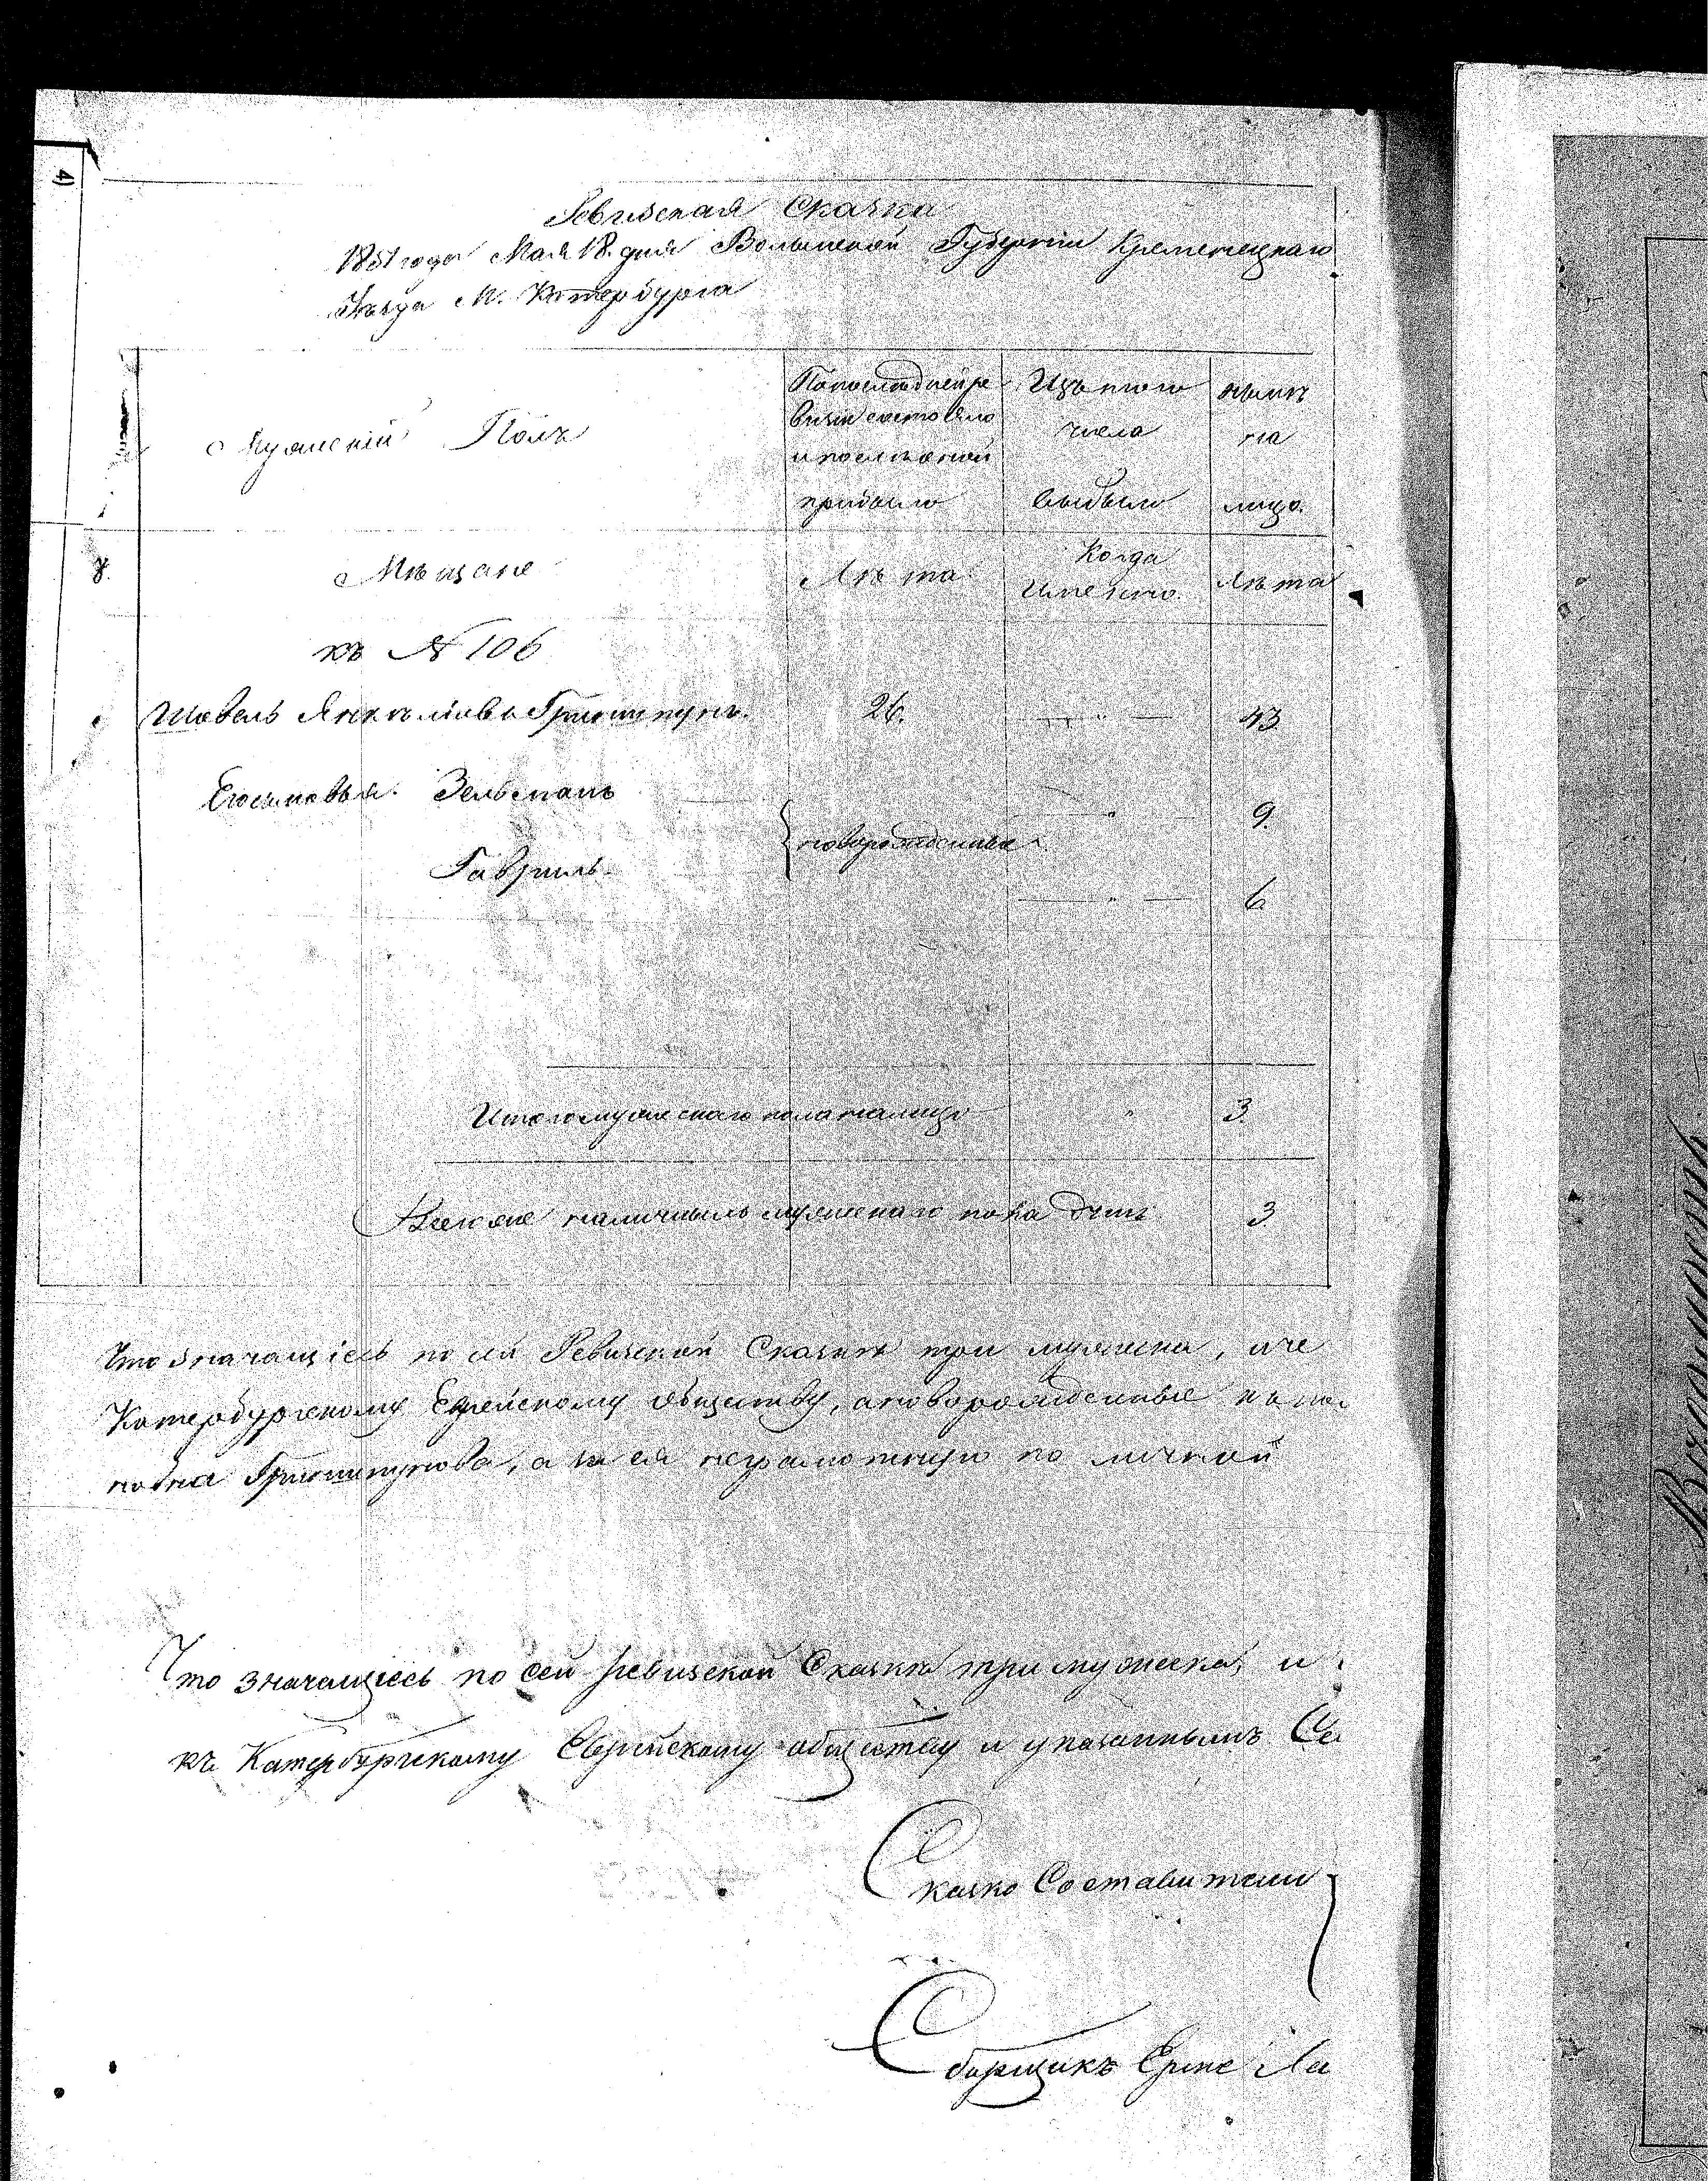 Ревизская Сказка
1851 года Мая 18. дня Волынской Губернии Кременецкаго
Уезда М. Катербурга
Мужеский Полъ
По последней ре
визии состояло
и после оной
прибыло
Изъ того
числа
выбыло
ныне
на
лицо.
Мещане
Лета
Когда
именно.
Лета
къ № 106
Шовель Янкелiовъ
26.
43
Его сыновья. Зельманъ
новорожденные
9.
Гавриль.
6
Итого мужескаго пола налицо
"
3.
Всего же наличныхъ мужескаго пола душъ
3
Что значащіесь по сей Ревизской Сказке три мужеска, и не
Катербургскому Еврейскому обществу, а новорожденные
а за ея неграмотную по личной
Что значащіесь по сей ревизской Сказке три мужеска, и
къ Катербургскому Еврейскому обществу и указаннымъ
Сказко Составители
Сборщикъ